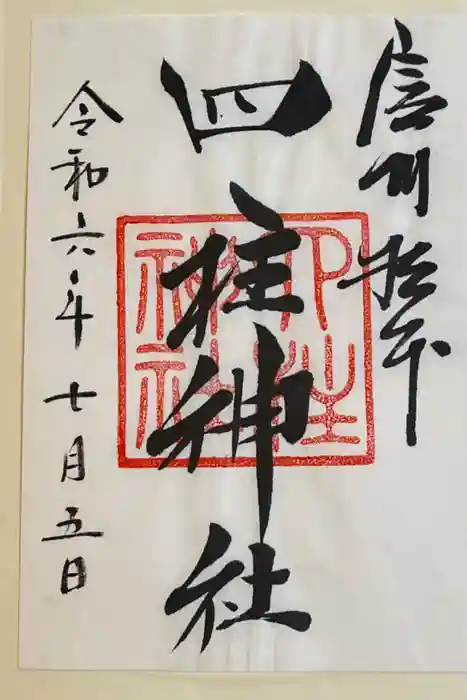 信州松本
四柱神社
四柱神社
令和六年七月五日